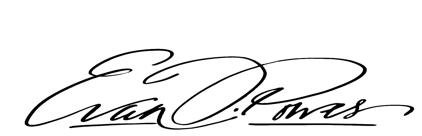 Evan D. Powers